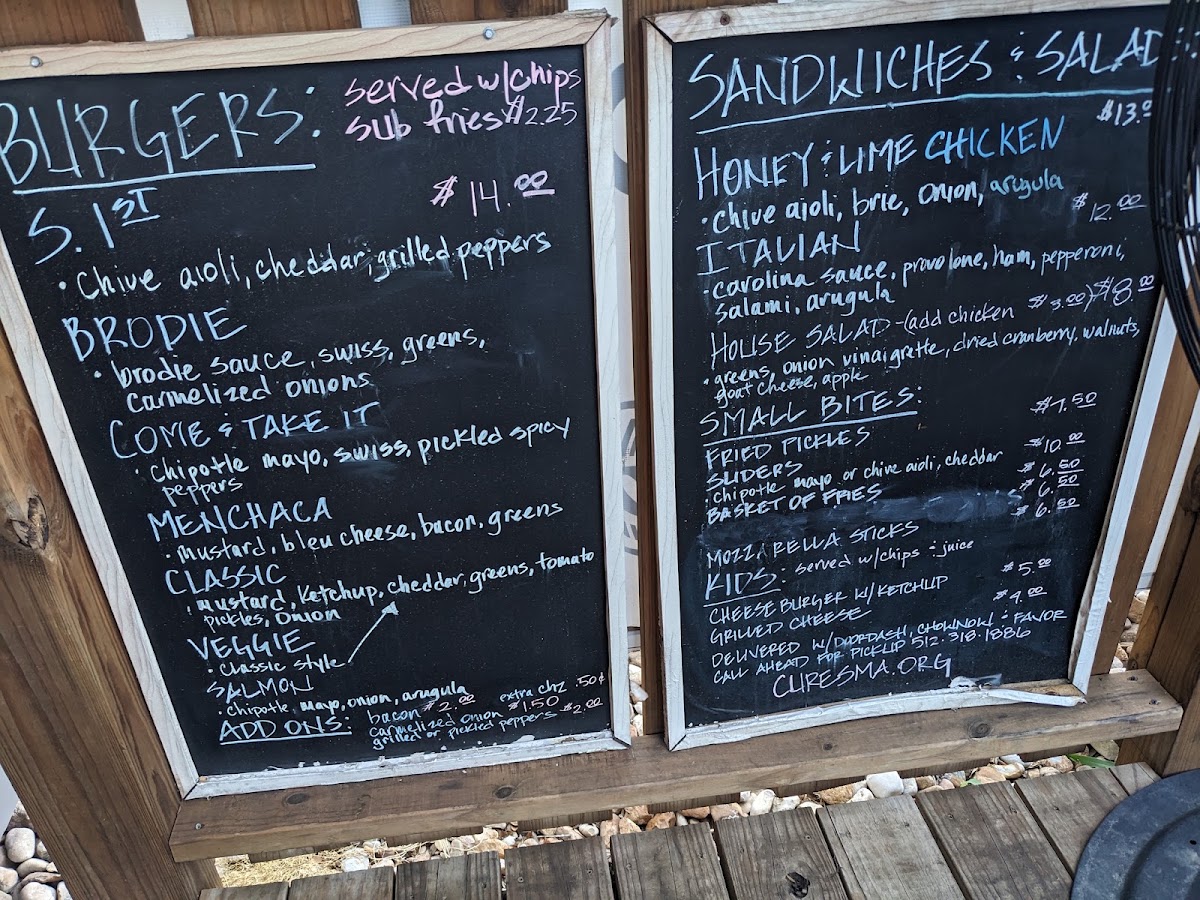 BURGERS:
served w/chips
sub fries $2.25
S. 1ST
$14.00
• Chive aioli, cheddar, grilled peppers
BRODIE
• brodie sauce, swiss, greens,
carmelized onions
COME & TAKE IT
• Chipotle mayo, swiss, pickled spicy
peppers
MENCHACA
• mustard, bleu cheese, bacon, greens
CLASSIC
• mustard, Ketchup, cheddar, greens, tomato
pickles, onion
VEGGIE
• classic style
SALMON
• Chipotle, mayo, onion, arugula
ADD ONS: bacon $2.00 extra chz .50¢
carmelized onion $1.50
grilled or pickled peppers $2.00
SANDWICHES & SALAD
$13.0
HONEY & LIME CHICKEN
• chive aioli, brie, onion, arugula
$12.00
ITALIAN
• carolina sauce, provolone, ham, pepperoni,
salami, arugula
HOUSE SALAD - (add chicken $3.00) $8.00
• greens, onion vinaigrette, dried cranberry, walnuts,
goat cheese, apple
SMALL BITES:
FRIED PICKLES $7.50
SLIDERS $10.00
• chipotle mayo or chive aioli, cheddar $6.50
BASKET OF FRIES $6.50
$6.50
MOZZARELLA STICKS
KIDS: served w/chips & juice
CHEESEBURGER W/KETCHUP $5.00
GRILLED CHEESE $4.00
DELIVERED W/DOORDASH, CHOWNOW & FAVOR
CALL AHEAD FOR PICKUP 512.318.1886
CURESMA.ORG